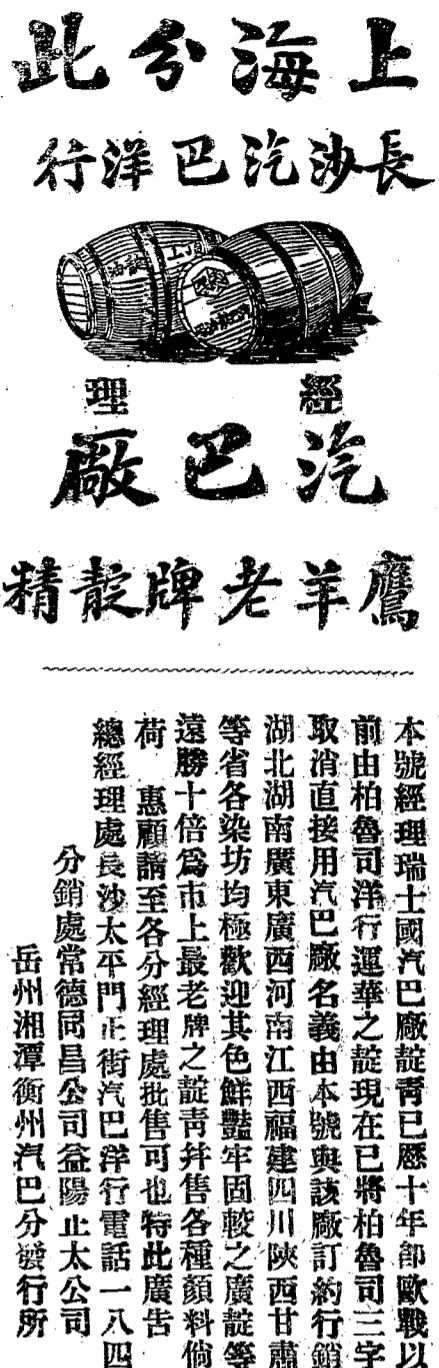 上海分此
長沙汽巴洋行
頂上靛油
經理
汽巴廠
鷹羊老牌靛精
本號經理瑞士國汽巴廠靛靑已歷十年卽歐戰以
前由柏魯司洋行運華之靛現在已將柏魯司三字
取消直接用汽巴廠名義由本號與該廠訂約行銷
湖北湖南廣東廣西河南江西福建四川陝西甘肅
等省各染坊均極歡迎其色鮮豔牢固較之廣靛等
遠勝十倍爲市上最老牌之靛靑幷售各種顏料倘
荷　惠顧請至各分經理處批售可也特此廣告
總經理處長沙太平門正街汽巴洋行電話一八四
分銷處常德同昌公司益陽正太公司
岳州湘潭衡州汽巴分發行所